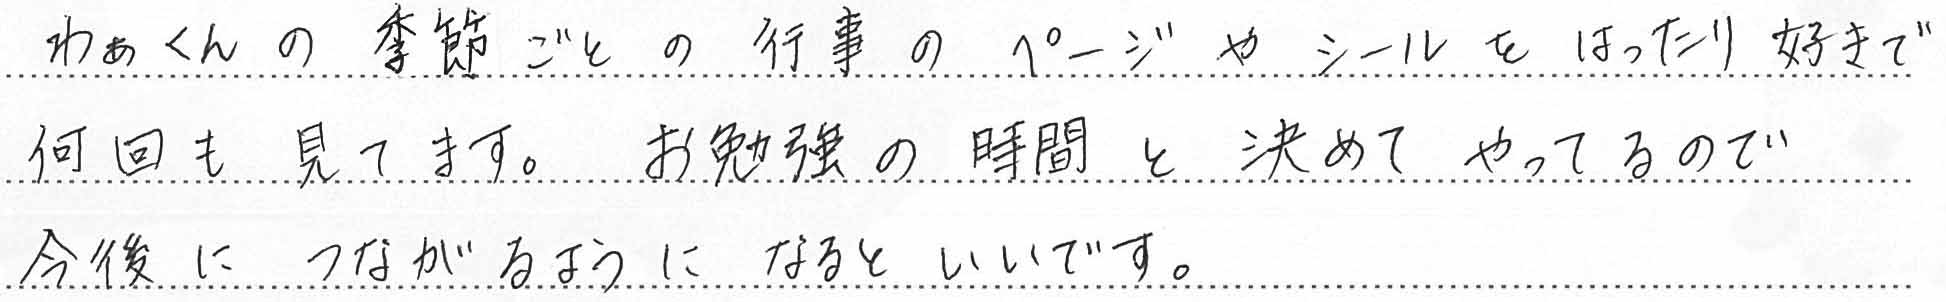 わぁくんの季節ごとの行事のページやシールをはったり好きで
何回も見てます。お勉強の時間と決めてやってるので
今後につながるようになるといいです。